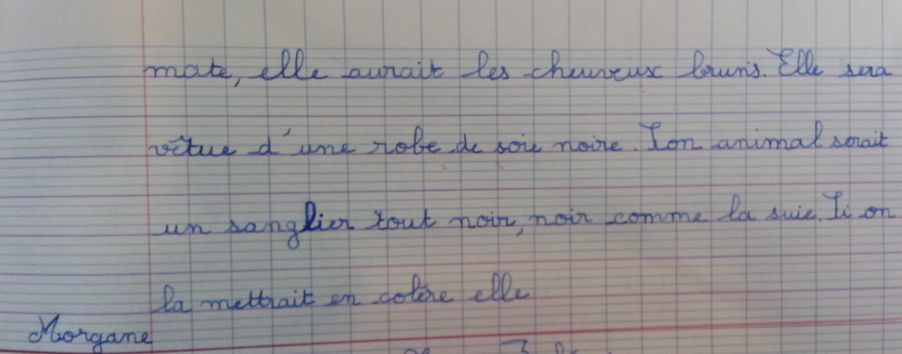 mate, elle aurait les cheuveux bruns. Elle sera
vêtue d'une robe de soie noire. Son animal serait
un sanglier tout noir, noir comme la suie. Si on
la mettrait en colère elle
Morgane